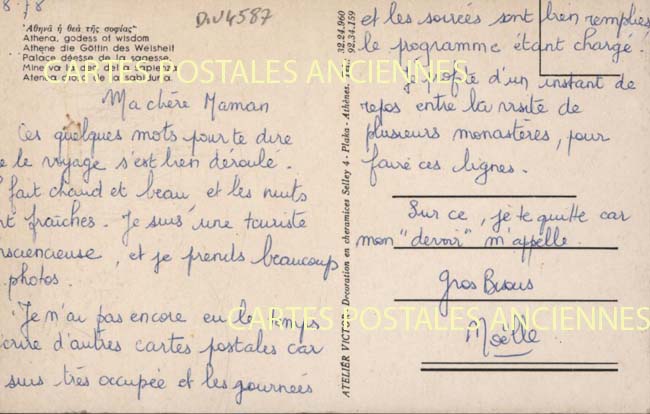 8.78
D.V4587
"Αθηνᾶ ἡ θεὰ τῆς σοφίας"
Athena, godess of wisdom
Athene die Göttin des Weisheit
Palace déesse de la sagesse
Minerva la dea della sapienza
Atena
la sabiduria
Ma chère Maman
Ces quelques mots pour te dire
e le voyage s'est bien déroulé.
fait chaud et beau et les nuits
nt fraîches. Je suis une touriste
nsciencieuse, et je prends beaucoup
photos.
Je n'ai pas encore eu le temps
écrire d'autres cartes postales car
suis très occupée et les journées
ATELIER VICTOR, Decoration en cheramices Selley 4 - Plaka - Athènes.
32.24.960
92.34.159
et les soirées sont bien remplies
le programme étant chargé!
Je profite d'un instant de
repos entre la visite de
plusieurs monastères, pour
faire ces lignes.
Sur ce, je te quitte car
mon "devoir" m'appelle.
Gros Bisous
Moëlle
CARTES POSTALES ANCIENNES
CARTES POSTALES ANCIENNES